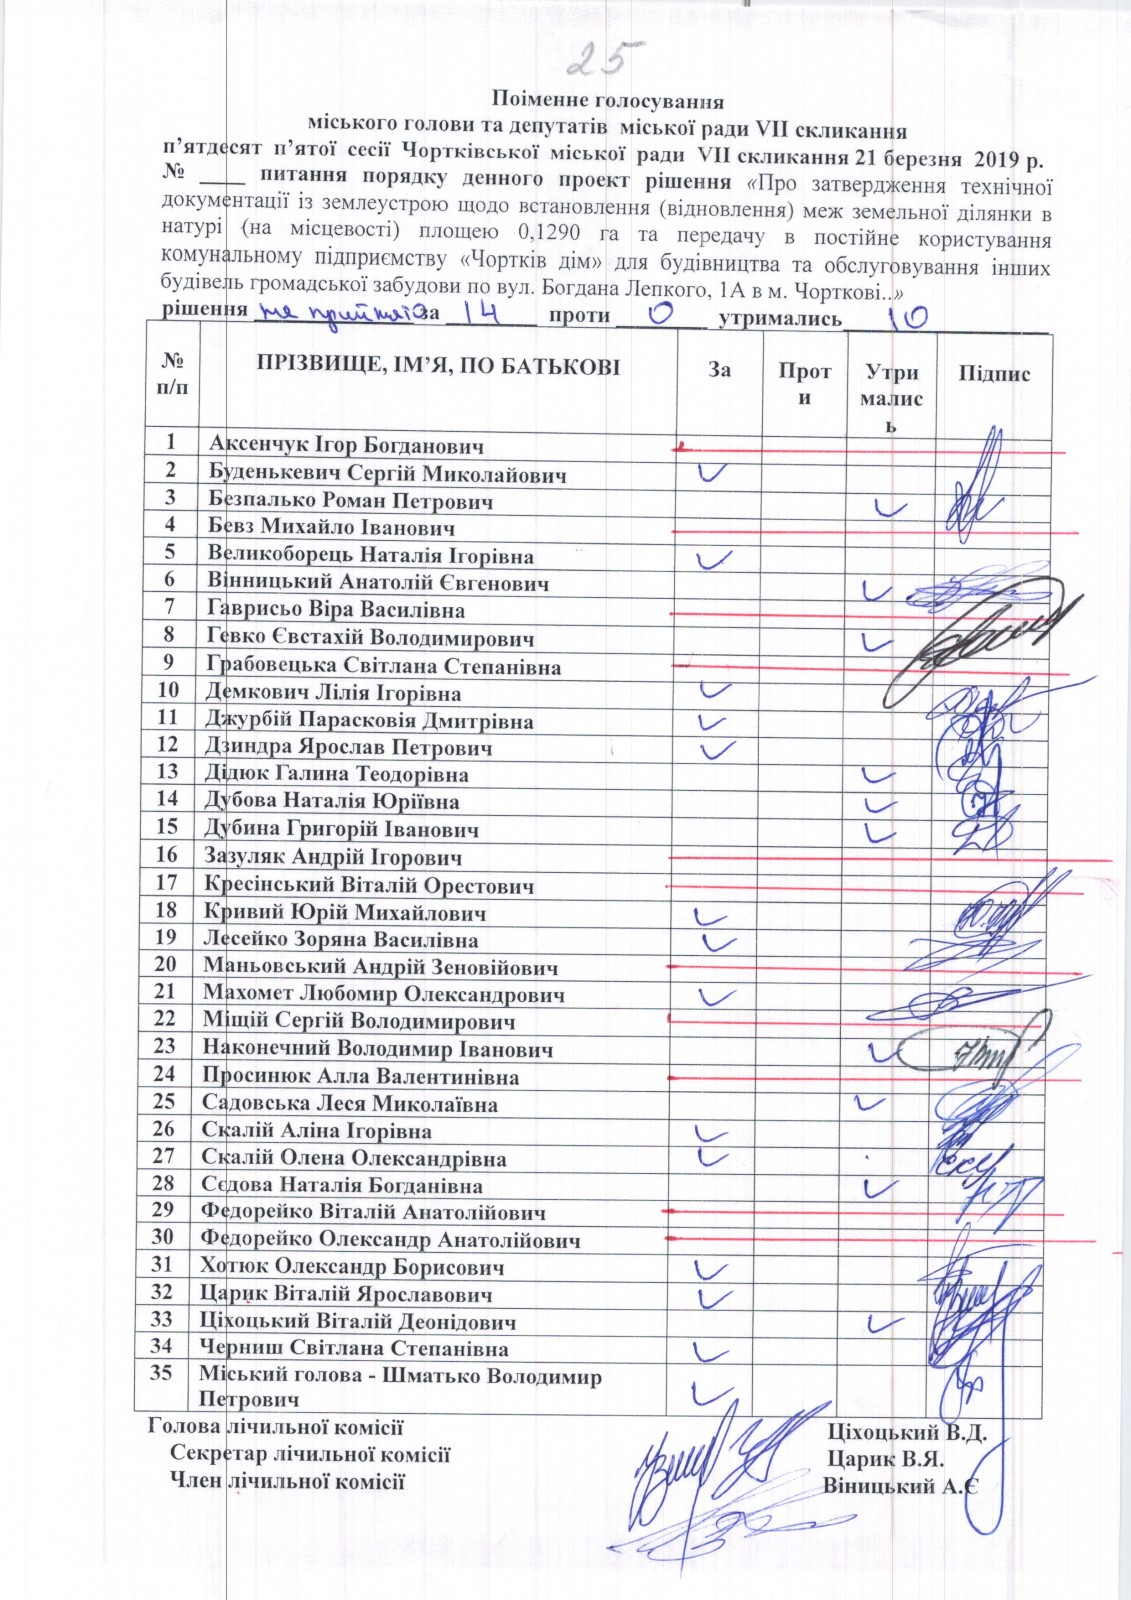 25
Поіменне голосування
міського голови та депутатів міської ради VII скликання
п’ятдесят п’ятої сесії Чортківської міської ради VII скликання 21 березня 2019 р.
№ ____ питання порядку денного проект рішення «Про затвердження технічної
документації із землеустрою щодо встановлення (відновлення) меж земельної ділянки в
натурі (на місцевості) площею 0,1290 га та передачу в постійне користування
комунальному підприємству «Чортків дім» для будівництва та обслуговування інших
будівель громадської забудови по вул. Богдана Лепкого, 1А в м. Чорткові..»
рішення не прийнято за 14 проти 0 утримались 10
№ п/п ПРІЗВИЩЕ, ІМ’Я, ПО БАТЬКОВІ За Проти Утримались Підпис
1 Аксенчук Ігор Богданович
2 Буденькевич Сергій Миколайович
3 Безпалько Роман Петрович
4 Бевз Михайло Іванович
5 Великоборець Наталія Ігорівна
6 Вінницький Анатолій Євгенович
7 Гаврисьо Віра Василівна
8 Гевко Євстахій Володимирович
9 Грабовецька Світлана Степанівна
10 Демкович Лілія Ігорівна
11 Джурбій Парасковія Дмитрівна
12 Дзиндра Ярослав Петрович
13 Дідюк Галина Теодорівна
14 Дубова Наталія Юріївна
15 Дубина Григорій Іванович
16 Зазуляк Андрій Ігорович
17 Кресінський Віталій Орестович
18 Кривий Юрій Михайлович
19 Лесейко Зоряна Василівна
20 Маньовський Андрій Зеновійович
21 Махомет Любомир Олександрович
22 Міщій Сергій Володимирович
23 Наконечний Володимир Іванович
24 Просинюк Алла Валентинівна
25 Садовська Леся Миколаївна
26 Скалій Аліна Ігорівна
27 Скалій Олена Олександрівна
28 Сєдова Наталія Богданівна
29 Федорейко Віталій Анатолійович
30 Федорейко Олександр Анатолійович
31 Хотюк Олександр Борисович
32 Царик Віталій Ярославович
33 Ціхоцький Віталій Деонідович
34 Черниш Світлана Степанівна
35 Міський голова - Шматько Володимир
Петрович
Голова лічильної комісії Ціхоцький В.Д.
Секретар лічильної комісії Царик В.Я.
Член лічильної комісії Віницький А.Є